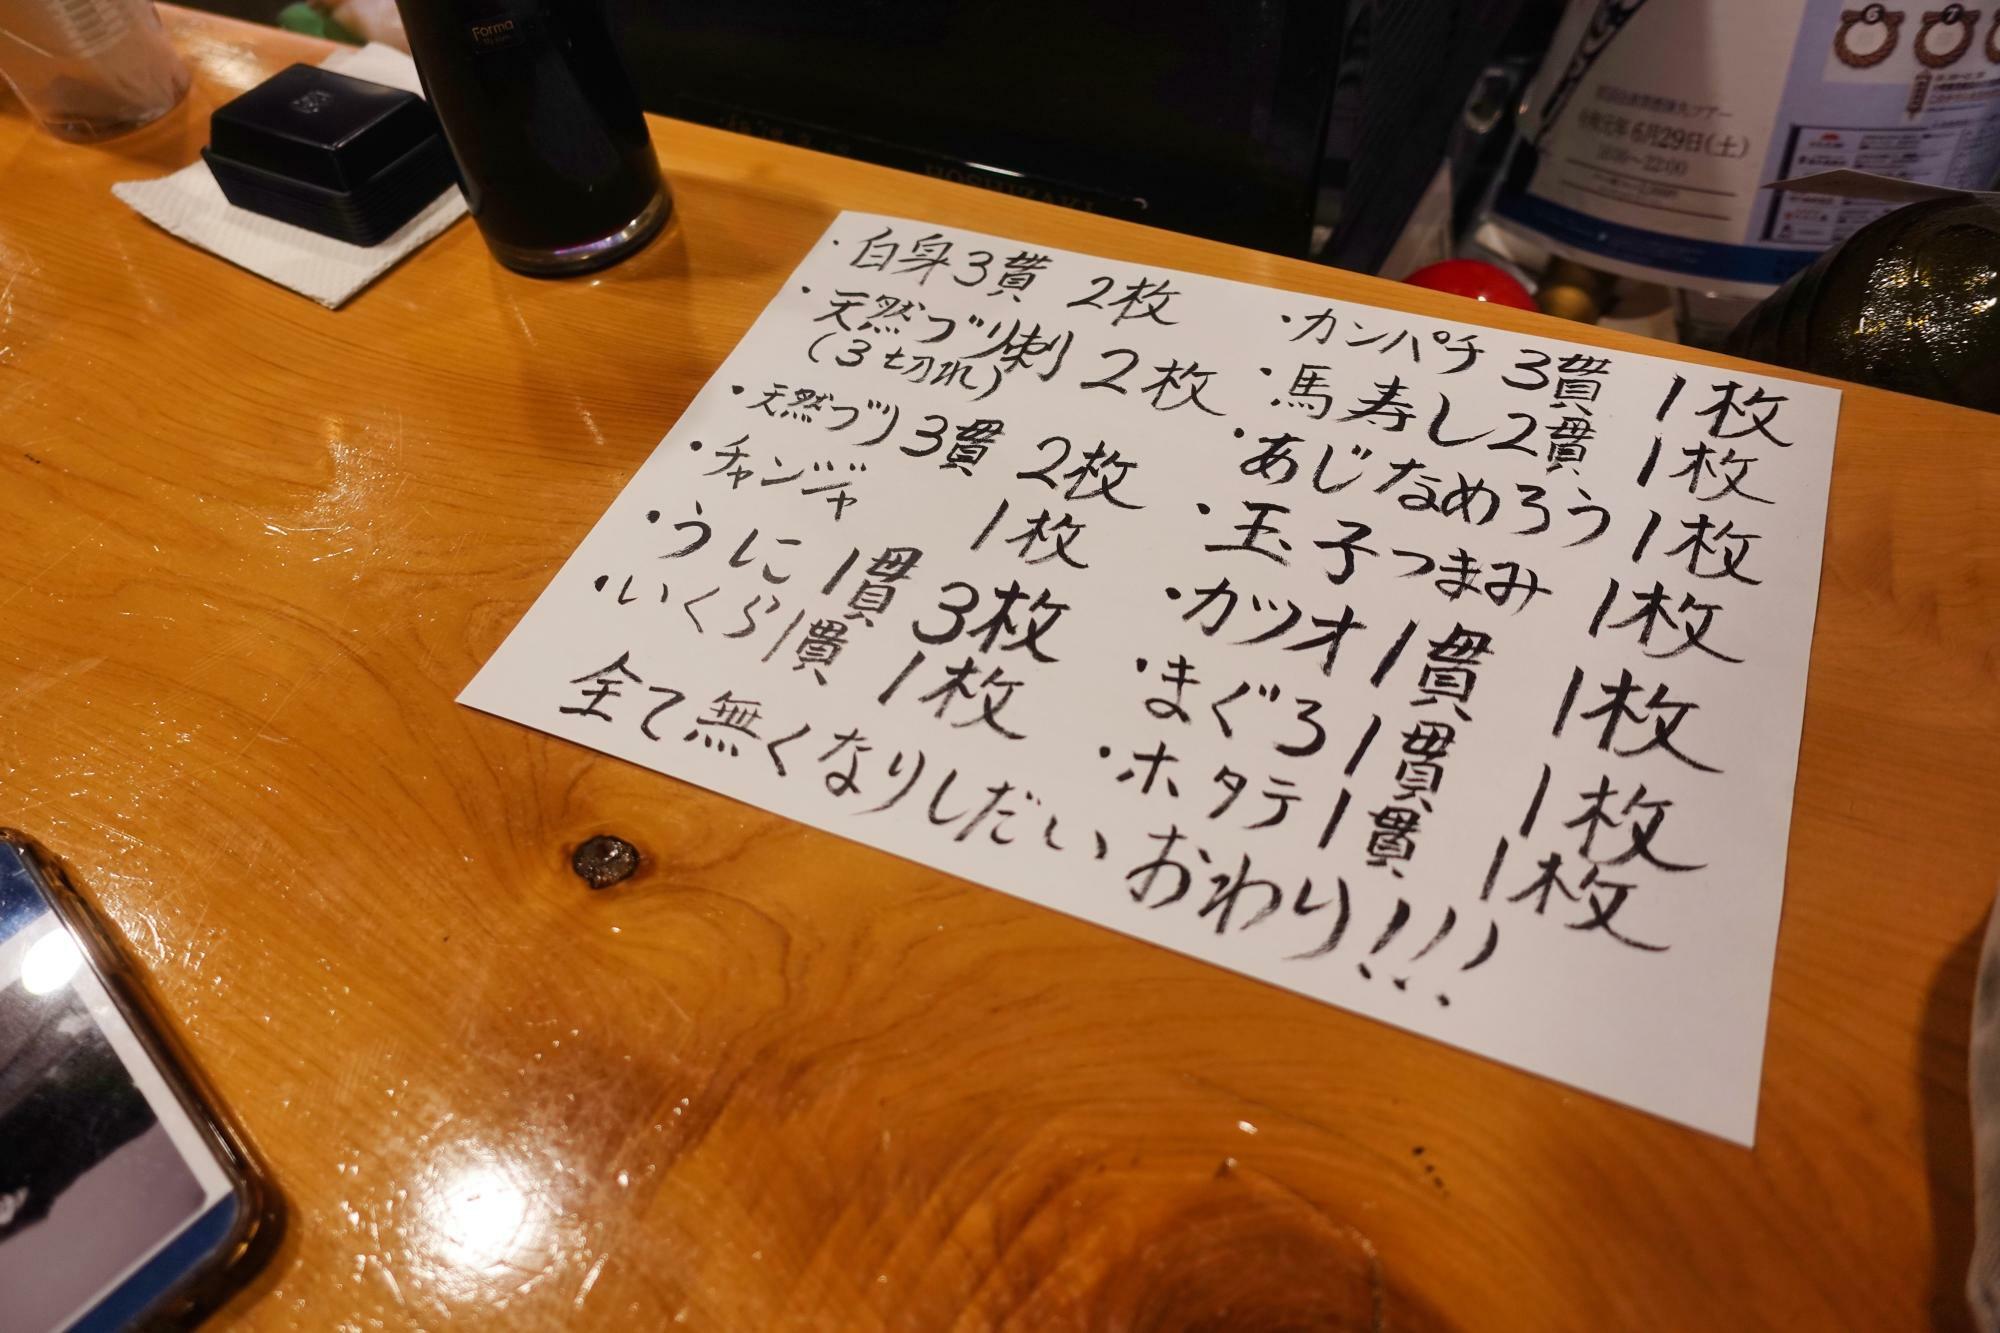 Forma
HOSHIZAKI
6
7
令和元年 6月29日(土)
・白身3貫 2枚
・天然ブリ刺 2枚
(3切れ)
・天然ブリ3貫 2枚
・チャンジャ 1枚
・うに 1貫 3枚
・いくら1貫 1枚
・カンパチ 3貫 1枚
・馬寿し2貫 1枚
・あじなめろう 1枚
・玉子つまみ 1枚
・カツオ 1貫 1枚
・まぐろ 1貫 1枚
・ホタテ 1貫 1枚
全て無くなりしだい おわり!!!